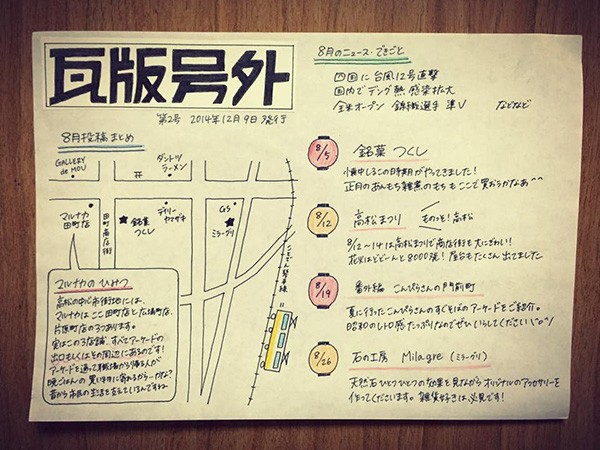 瓦版号外
第2号 2014年12月9日発行
8月のニュース・できごと
四国に台風12号直撃
国内でデング熱感染拡大
全米オープン 錦織選手 準V などなど
8月投稿まとめ
GALLERY de MOU
ダントツラーメン
卍
マルナカ田町店
田町商店街
銘菓つくし
デイリーヤマザキ
GS
ミラーグリ
ことでん琴平線
マルナカのひみつ
高松の中心市街地には、
マルナカはここ田町店と広場町店、
片原町店の3つあります。
実はこの3店舗、すべてアーケードの
出口もしくはその周辺にあるのです!
アーケードを通って職場から帰る人が
晩ごはんの買い物に寄れるから…かな?
昔から市民の生活を支えているんですね。
8/5 銘菓つくし
懐中しるこの時期がやってきました!
正月のあんもち雑煮のもちもここで買おうかなあ^^
8/12 高松まつり ものっそ!高松
8/12~14は高松まつりで商店街も大にぎわい!
花火はどどーんと8000発!屋台もたくさん出てました
8/19 番外編 こんぴらさんの門前町
夏に行ったこんぴらさんのすぐそばのアーケードをご紹介。
昭和のレトロ感たっぷりなのでぜひいらしてください\(^o^)/
8/26 石の工房 Milagre (ミラーグリ)
天然石ひとつひとつの効果を見ながらオリジナルのアクセサリーを
作ってくださいます。雑貨好きは必見です!